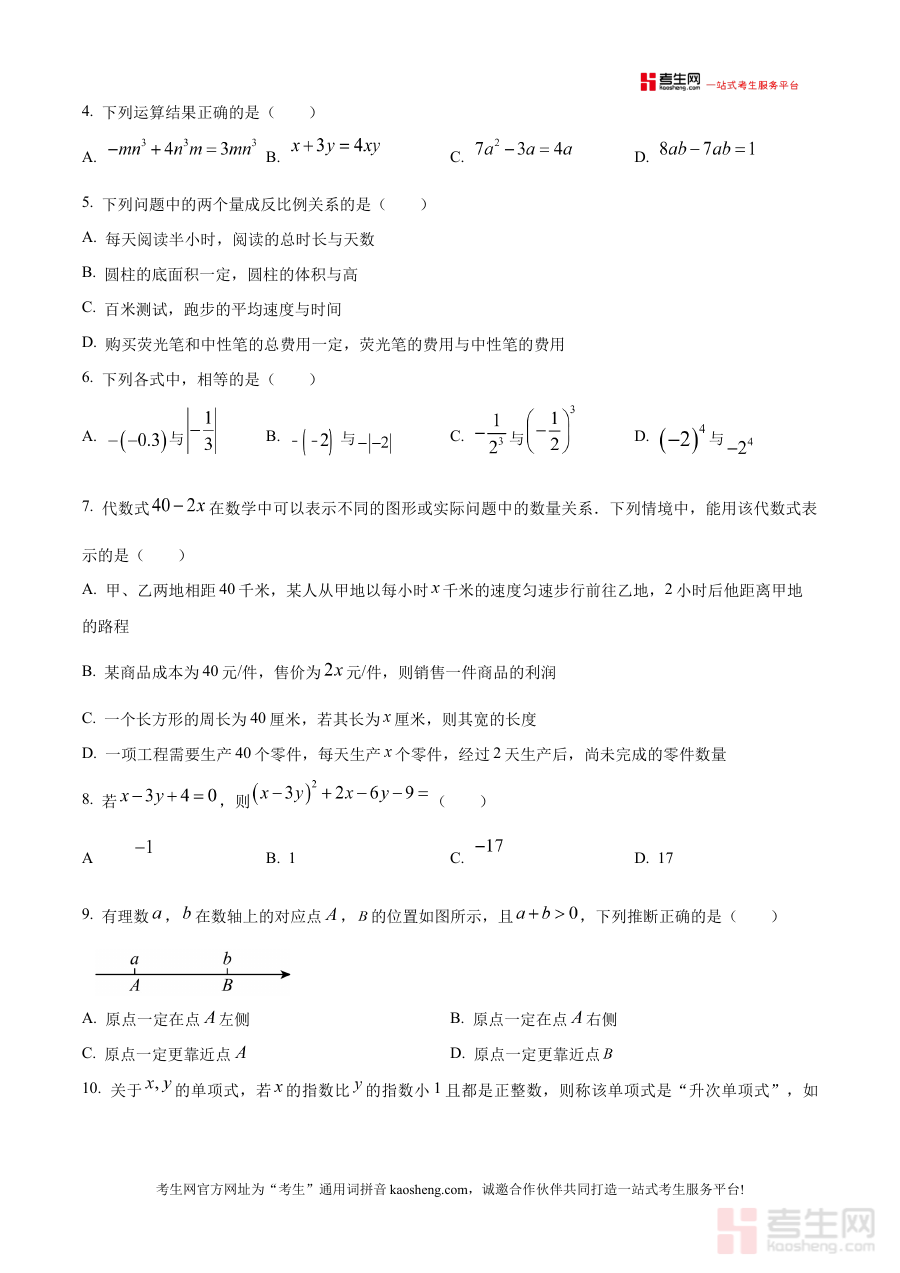 考生网 kaosheng.com 一站式考生服务平台
4. 下列运算结果正确的是（　　）
A. −mn³ + 4n³m = 3mn³ B. x + 3y = 4xy C. 7a² − 3a = 4a D. 8ab − 7ab = 1
5. 下列问题中的两个量成反比例关系的是（　　）
A. 每天阅读半小时，阅读的总时长与天数
B. 圆柱的底面积一定，圆柱的体积与高
C. 百米测试，跑步的平均速度与时间
D. 购买荧光笔和中性笔的总费用一定，荧光笔的费用与中性笔的费用
6. 下列各式中，相等的是（　　）
A. −(−0.3)与|−1/3| B. −(−2) 与−|−2| C. −1/2³与(−1/2)³ D. (−2)⁴与−2⁴
7. 代数式 40 − 2x 在数学中可以表示不同的图形或实际问题中的数量关系．下列情境中，能用该代数式表
示的是（　　）
A. 甲、乙两地相距 40 千米，某人从甲地以每小时 x 千米的速度匀速步行前往乙地，2 小时后他距离甲地
的路程
B. 某商品成本为 40 元/件，售价为 2x 元/件，则销售一件商品的利润
C. 一个长方形的周长为 40 厘米，若其长为 x 厘米，则其宽的长度
D. 一项工程需要生产 40 个零件，每天生产 x 个零件，经过 2 天生产后，尚未完成的零件数量
8. 若 x − 3y + 4 = 0，则(x − 3y)² + 2x − 6y − 9 =（　　）
A −1 B. 1 C. −17 D. 17
9. 有理数 a，b 在数轴上的对应点 A，B 的位置如图所示，且 a + b > 0，下列推断正确的是（　　）
a b
A B
A. 原点一定在点 A 左侧 B. 原点一定在点 A 右侧
C. 原点一定更靠近点 A D. 原点一定更靠近点 B
10. 关于 x, y 的单项式，若 x 的指数比 y 的指数小 1 且都是正整数，则称该单项式是“升次单项式”，如
考生网官方网址为“考生”通用词拼音 kaosheng.com，诚邀合作伙伴共同打造一站式考生服务平台!
考生网
kaosheng.com